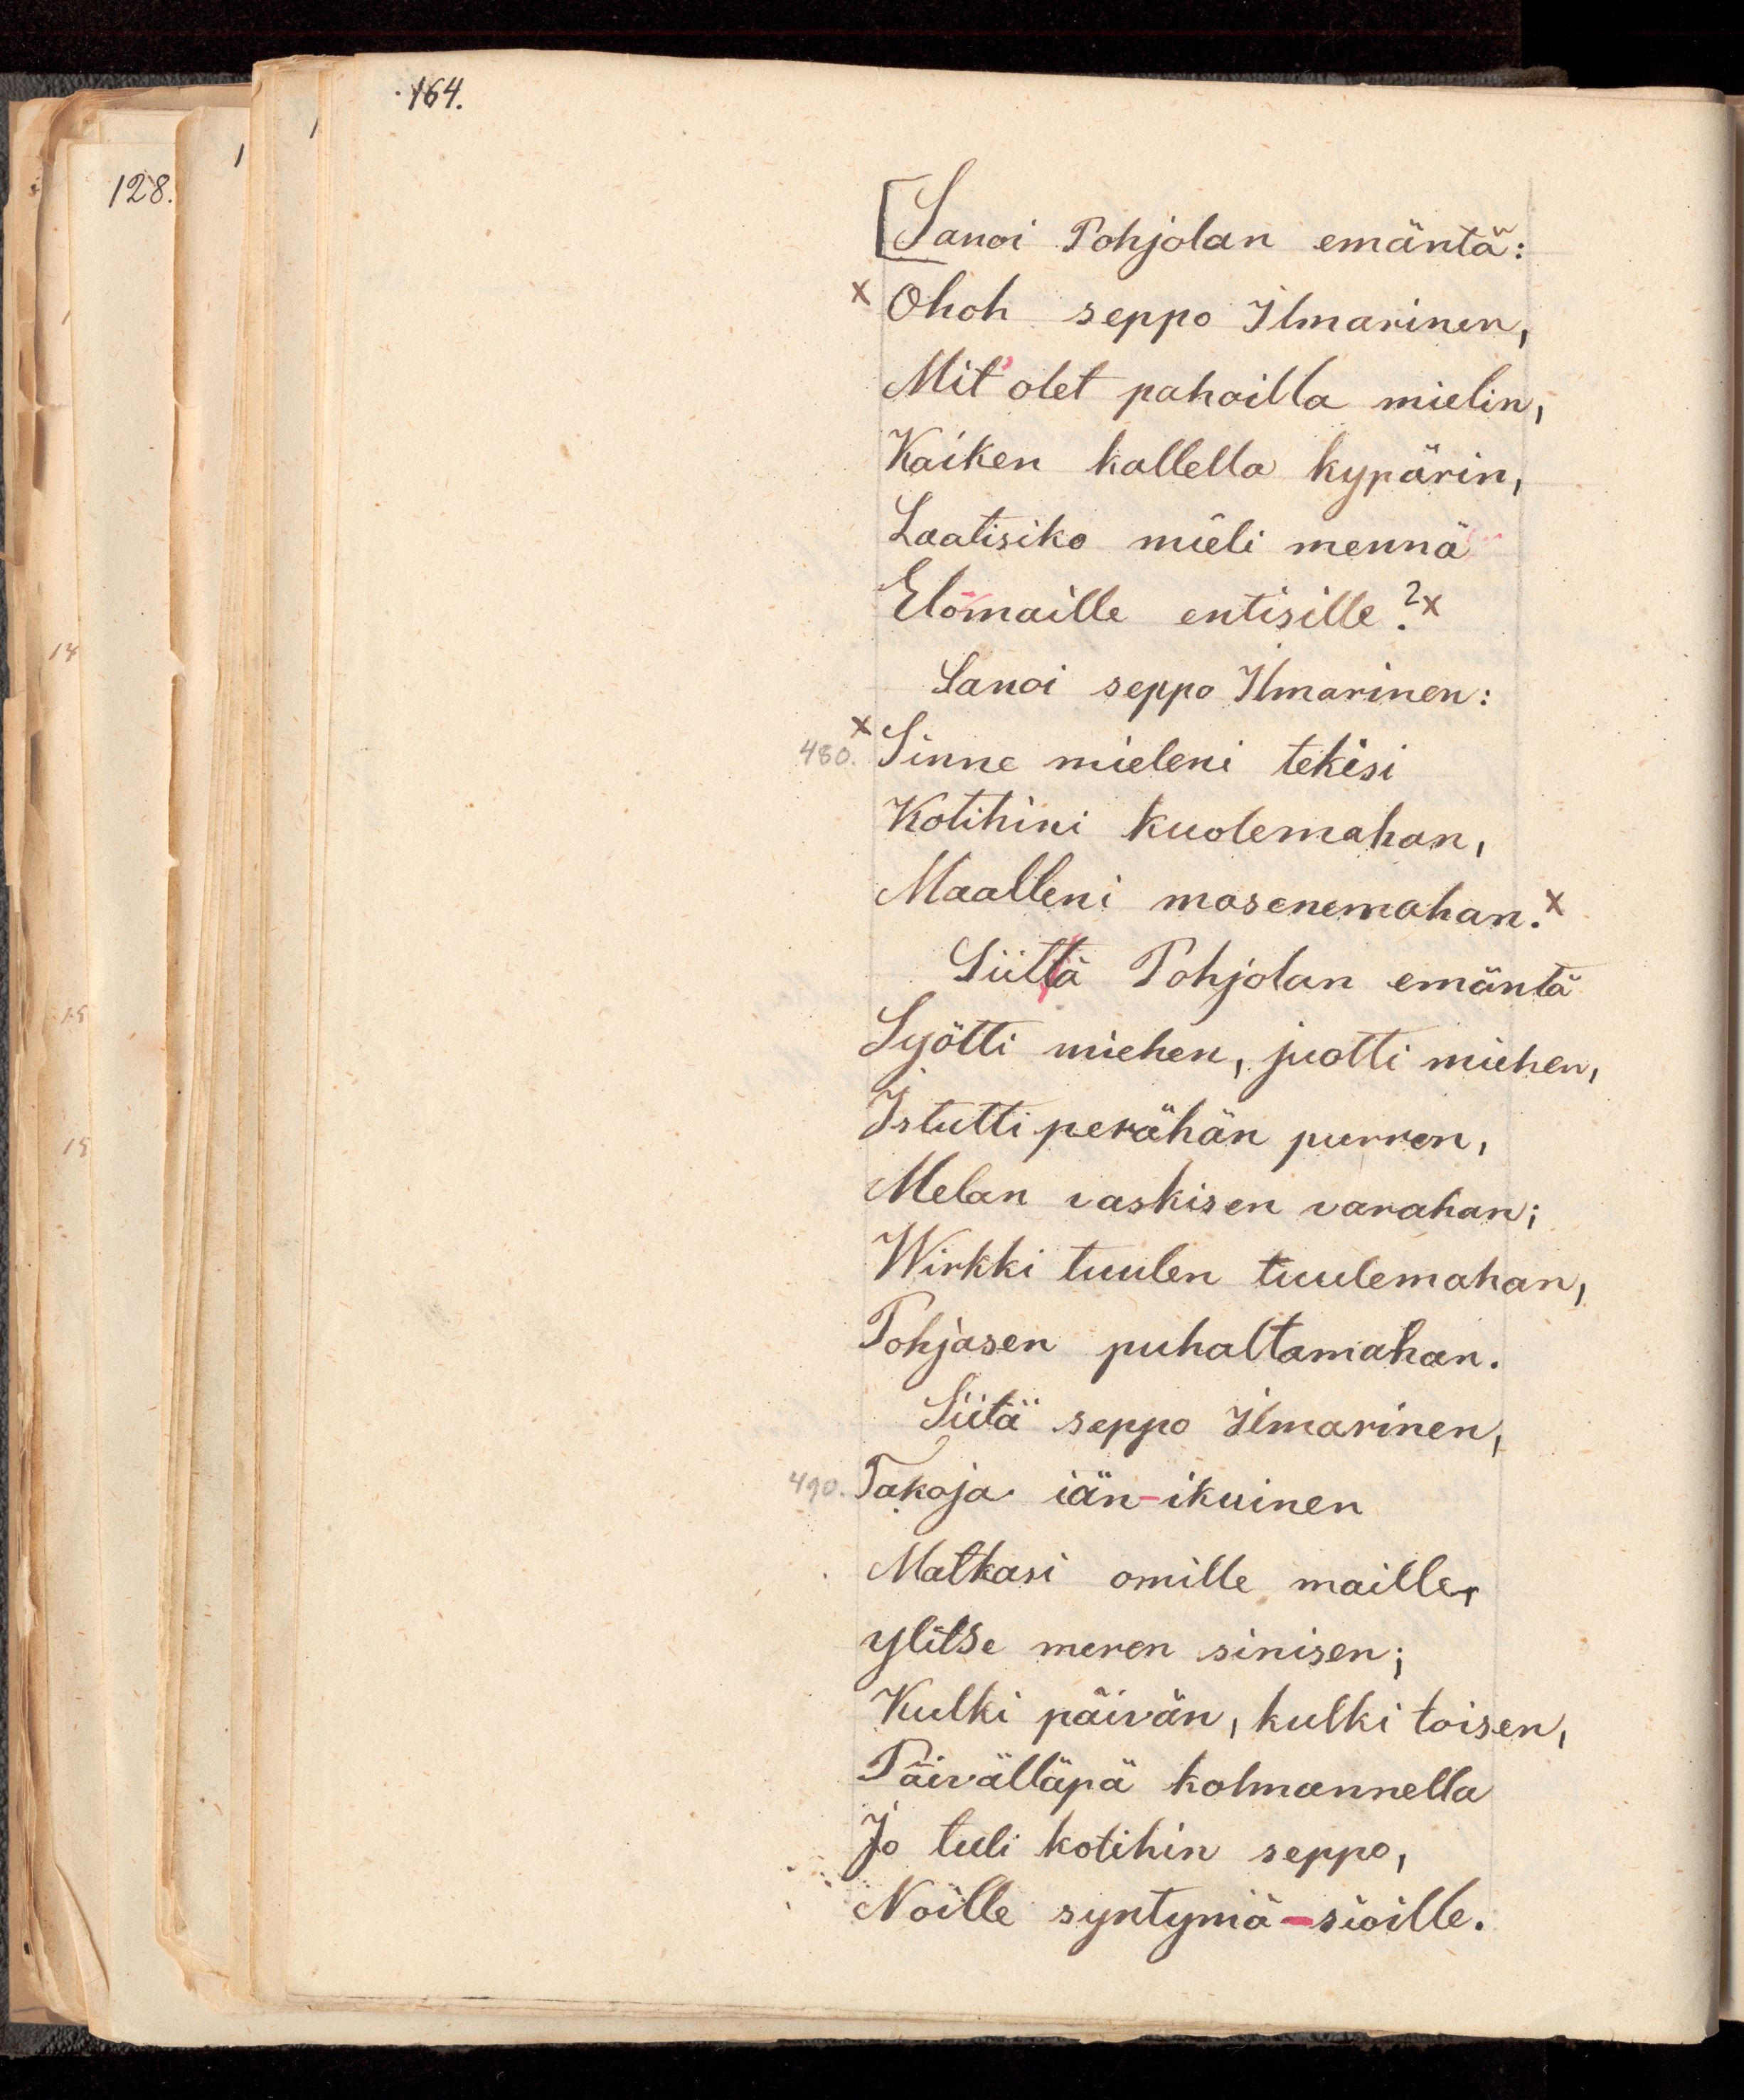 164.
128.
[Sanoi Pohjolan emäntä:
x Ohoh seppo Ilmarinen,
Mit' olet pahoilla mielin,
Kaiken kallella kypärin,
Laatisiko mieli mennä
Elomaille entisille? x
Sanoi seppo Ilmarinen:
x
480. Sinne mieleni tekisi
Kotihini kuolemahan,
Maalleni masenemahan. x
Siittä Pohjolan emäntä
Syötti miehen, juotti miehen,
Istutti perähän purren,
Melan vaskisen varahan;
Wirkki tuulen tuulemahan,
Pohjasen puhaltamahan.
Siitä seppo Ilmarinen,
490. Takoja iän-ikuinen
Matkasi omille maille,
ylitse meren sinisen;
Kulki päivän, kulki toisen,
Päivälläpä kolmannella
Jo tuli kotihin seppo,
Noille syntymä-sioille.